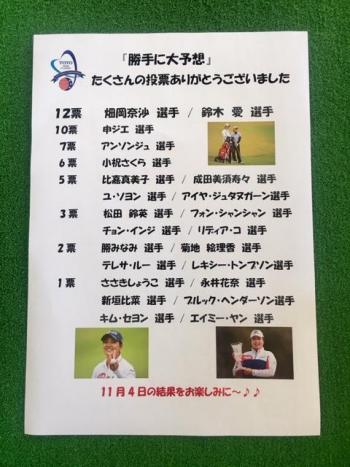 TOTO
「勝手に大予想」
たくさんの投票ありがとうございました
12票 畑岡奈沙 選手 / 鈴木 愛 選手
10票 申ジエ 選手
7票 アンソンジュ 選手
6票 小祝さくら 選手
5票 比嘉真美子 選手 / 成田美須寿々 選手
ユ・ソヨン 選手 / アイヤ・ジュタヌガーン選手
3票 松田 鈴英 選手 / フォン・シャンシャン 選手
チョン・インジ 選手 / リディア・コ 選手
2票 勝みなみ 選手 / 菊地 絵理香 選手
テレサ・ルー 選手 / レキシー・トンプソン選手
1票 ささきしょうこ 選手 / 永井花奈 選手
新垣比菜 選手 / ブルック・ヘンダーソン選手
キム・セヨン 選手 / エイミー・ヤン 選手
11月4日の結果をお楽しみに～♪♪